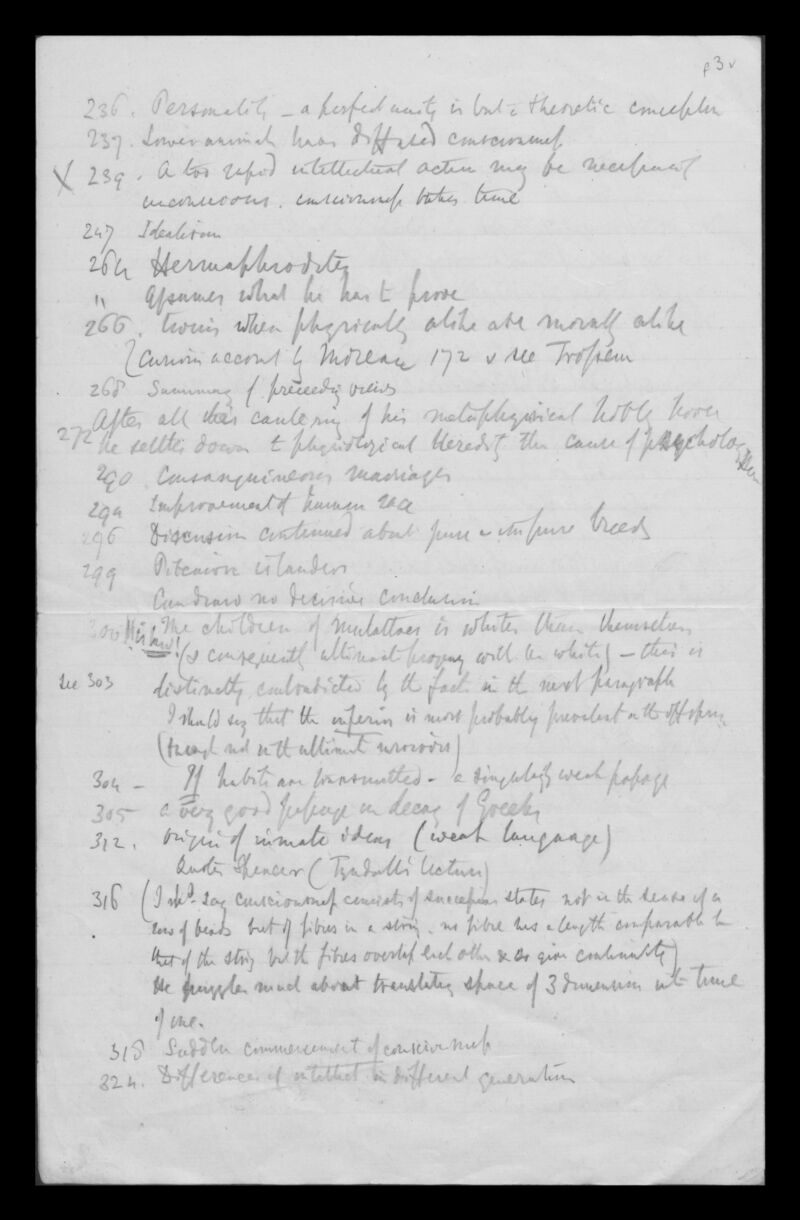 p3v
236. Personality – a perfect unity is but a theoretic conception
237. Lower animals have diffused consciousness
X 239. A too rapid intellectual action may be necessarily
unconscious. consciousness takes time
247 Idealism
264 Hermaphrodites
" Assumes what he has to prove
266. twins when physically alike are morally alike
(Curious account by Moreau 172 v see Trousseau
268 Summary of preceeding views
After all this cantering of his metaphysical hobby horse
272 he settles down to physiological Heredity the cause of psycholog
290. Consanguineous marriages
294 Improvement of human race
296 Discussion continued about pure & impure breeds
299 Pitcairn islanders
Can draw no decisive conclusion
300 His law! The children of mulattoes is whiter than themselves
(& consequently ultimate progeny will be white) – this is
see 303 distinctly contradicted by the facts in the next paragraph
I should say that the inferior is most probably prevalent in the offspring
(though not in the ultimate survivors)
304 – If habits are transmitted – a singularly weak passage
305 a very good passage on decay of Greeks
312. Origin of innate ideas (weak language)
Quotes Spencer (Tyndall's lecture)
316 (I shd. say consciousness consists of successive states not in the sense of a
row of beads but of fibres in a string. no fibre has a length comparable to
that of the string but the fibres overlap each other & so give continuity)
He puzzles much about translating space of 3 dimensions into time
of one.
318 Sudden commencement of consciousness
324. Differences of intellect in different generations